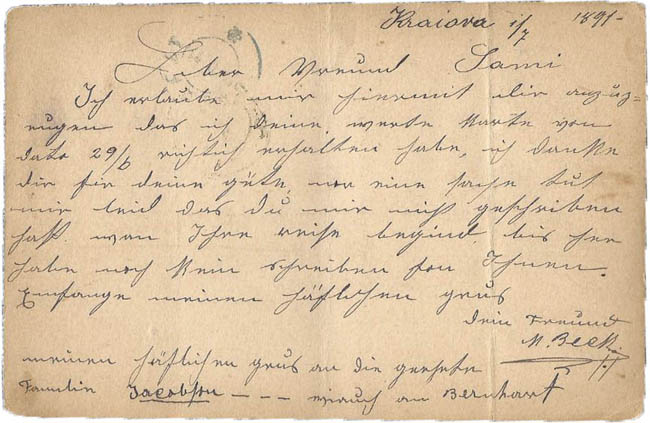 Kraiova 1/7 1891-
Liber Vreund Sami
Ich erlaube mir hiermit dir anzuz=
eugen das ich deine werte Karte von
dato 29/6 richtich erhalten habe, ich danke
dir für deine güte, nor eine sache tut
mir leid das du mir nicht geschriben
hast wan Ihre reise begint bis her
habe noch kein schreiben fon Ihnen.
Emfange meinen höflichen grus
dein Freund
M. Beck
meinen höflichen grus an die geehrte
Familie Jacobson - - - - auch an Bernhart